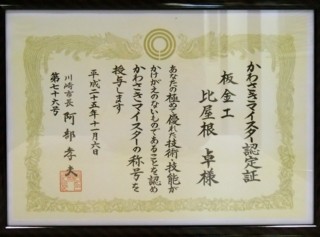 かわさきマイスター認定証
板金工
比屋根 卓様
あなたの極めて優れた技術・技能が
かけがえのないものであることを認め
かわさきマイスターの称号を
授与します
平成二十五年十一月六日
川崎市長 阿部孝夫
第七十六号